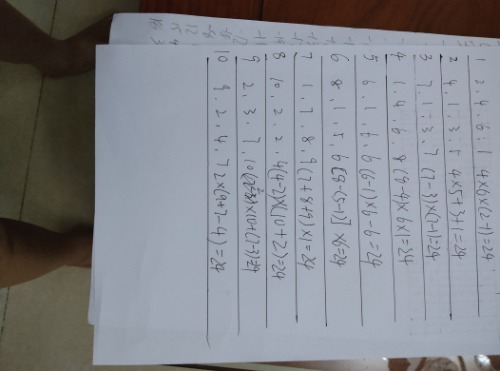 1. 2. 4. 6. 1 4×6×(2-1)=24
2 4. 1. 3. 5 4×5+3+1=24
3 7. 1. 3. 7 (7-3)×(7-1)=24
4 1. 4. 6. 8 (8-4)×6×1=24
5 6. 1. 6. 6 (6-1)×6-6=24
6 8. 1. 5. 6 [8-(5-1)]×6=24
7 1. 7. 8. 9 (7+8+9)×1=24
8 10. 2. 2. 4 (4-2)×(10+2)=24
9 2. 3. 7. 10
10 9. 2. 4. 7 2×(9+7-4)=24